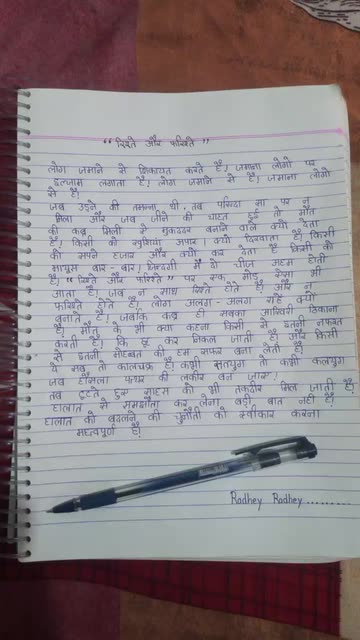 “ रिश्ते और फरिश्ते ”
लोग जमाने से शिकायत करते हैं, जमाना लोगो पर
इल्जाम लगाता है, लोग जमाने से है, जमाना लोगो
से है।
जब उड़ने की तमन्ना थी, तब परिन्दा सा पर न
मिला और जब जीने की चाहत हुई तो मौत
की कब्र मिली से मुकद्दर बनाने वाले क्यों देता
है, किसी को खुशियां अपार। क्यों दिलवाता है, किसी
की सपने हजार और क्यों कर देता है किसी को
मायूस बार-बार। जिन्दगी में दो चीज अहम होती
है, “रिश्ते और फरिश्ते” पर एक मोड ऐसा भी
आता है, जब न साथ रिश्ते होते है और न
फरिश्ते होते है, लोग अलग-अलग राहें क्यों
बनाते है, जबकि कब्र ही सबका आखिरी ठिकाना
है मौत के भी क्या कहना किसी से इतनी नफरत
करती है, कि छू कर निकल जाती है, और किसी
से इतनी मोहब्बत की हम सफर बना लेती है,
ये सब तो कालचक्र है, कभी सतयुग तो कभी कलयुग
जब हौसला पत्थर की लकीर बन जाए।
तब टूटते हुए साहस को भी तकदीर मिल जाती है,
हालात से समझौता कर लेना बड़ी बात नही है,
हालात को बदलने की चुनौती को स्वीकार करना
महत्वपूर्ण है।
Radhey Radhey.........